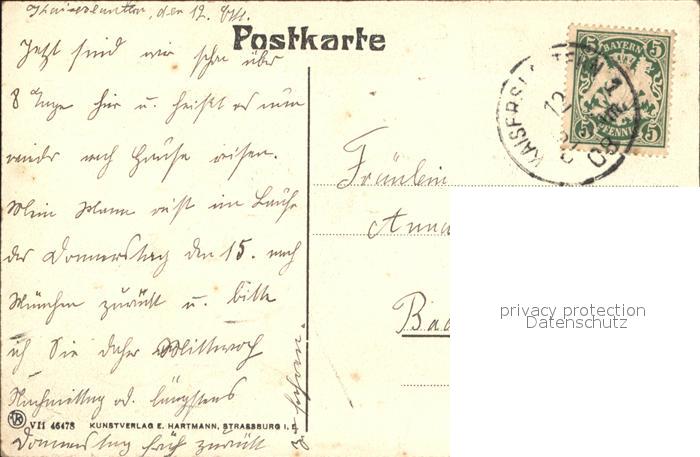 Kaiserslautern, den 12.
Postkarte
Jetzt sind wir schon über
8 Tage hier u. heißt es nun
wieder nach Hause reisen.
Mein Mann reist im Laufe
des Donnerstag den 15. nach
München zurück u. bitte
ich Sie daher Mittwoch
Nachmittag od. längstens
Donnerstag früh zurück
BAYERN
5 5
5 5
PFENNIG
KAISERSL
12
08
Fräulein
Anna
Ba
privacy protection
Datenschutz
VII 46478 KUNSTVERLAG E. HARTMANN, STRASSBURG I. E.